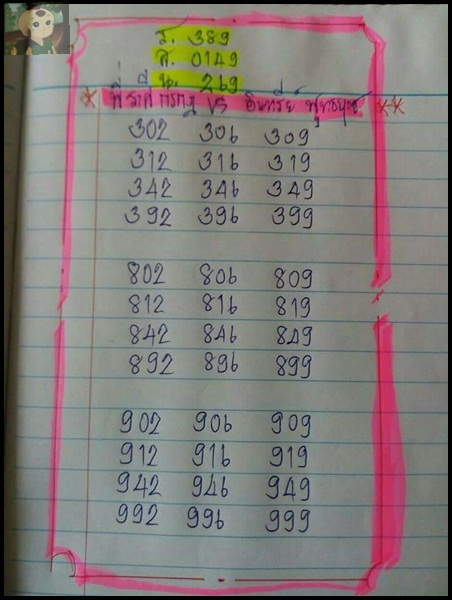 ร. 389
สิ. 0149
น. 269
* พี่ราศี กรกฎ VS อินทรีย์ พุทธคุณ **
302 306 309
312 316 319
342 346 349
392 396 399
802 806 809
812 816 819
842 846 849
892 896 899
902 906 909
912 916 919
942 946 949
992 996 999